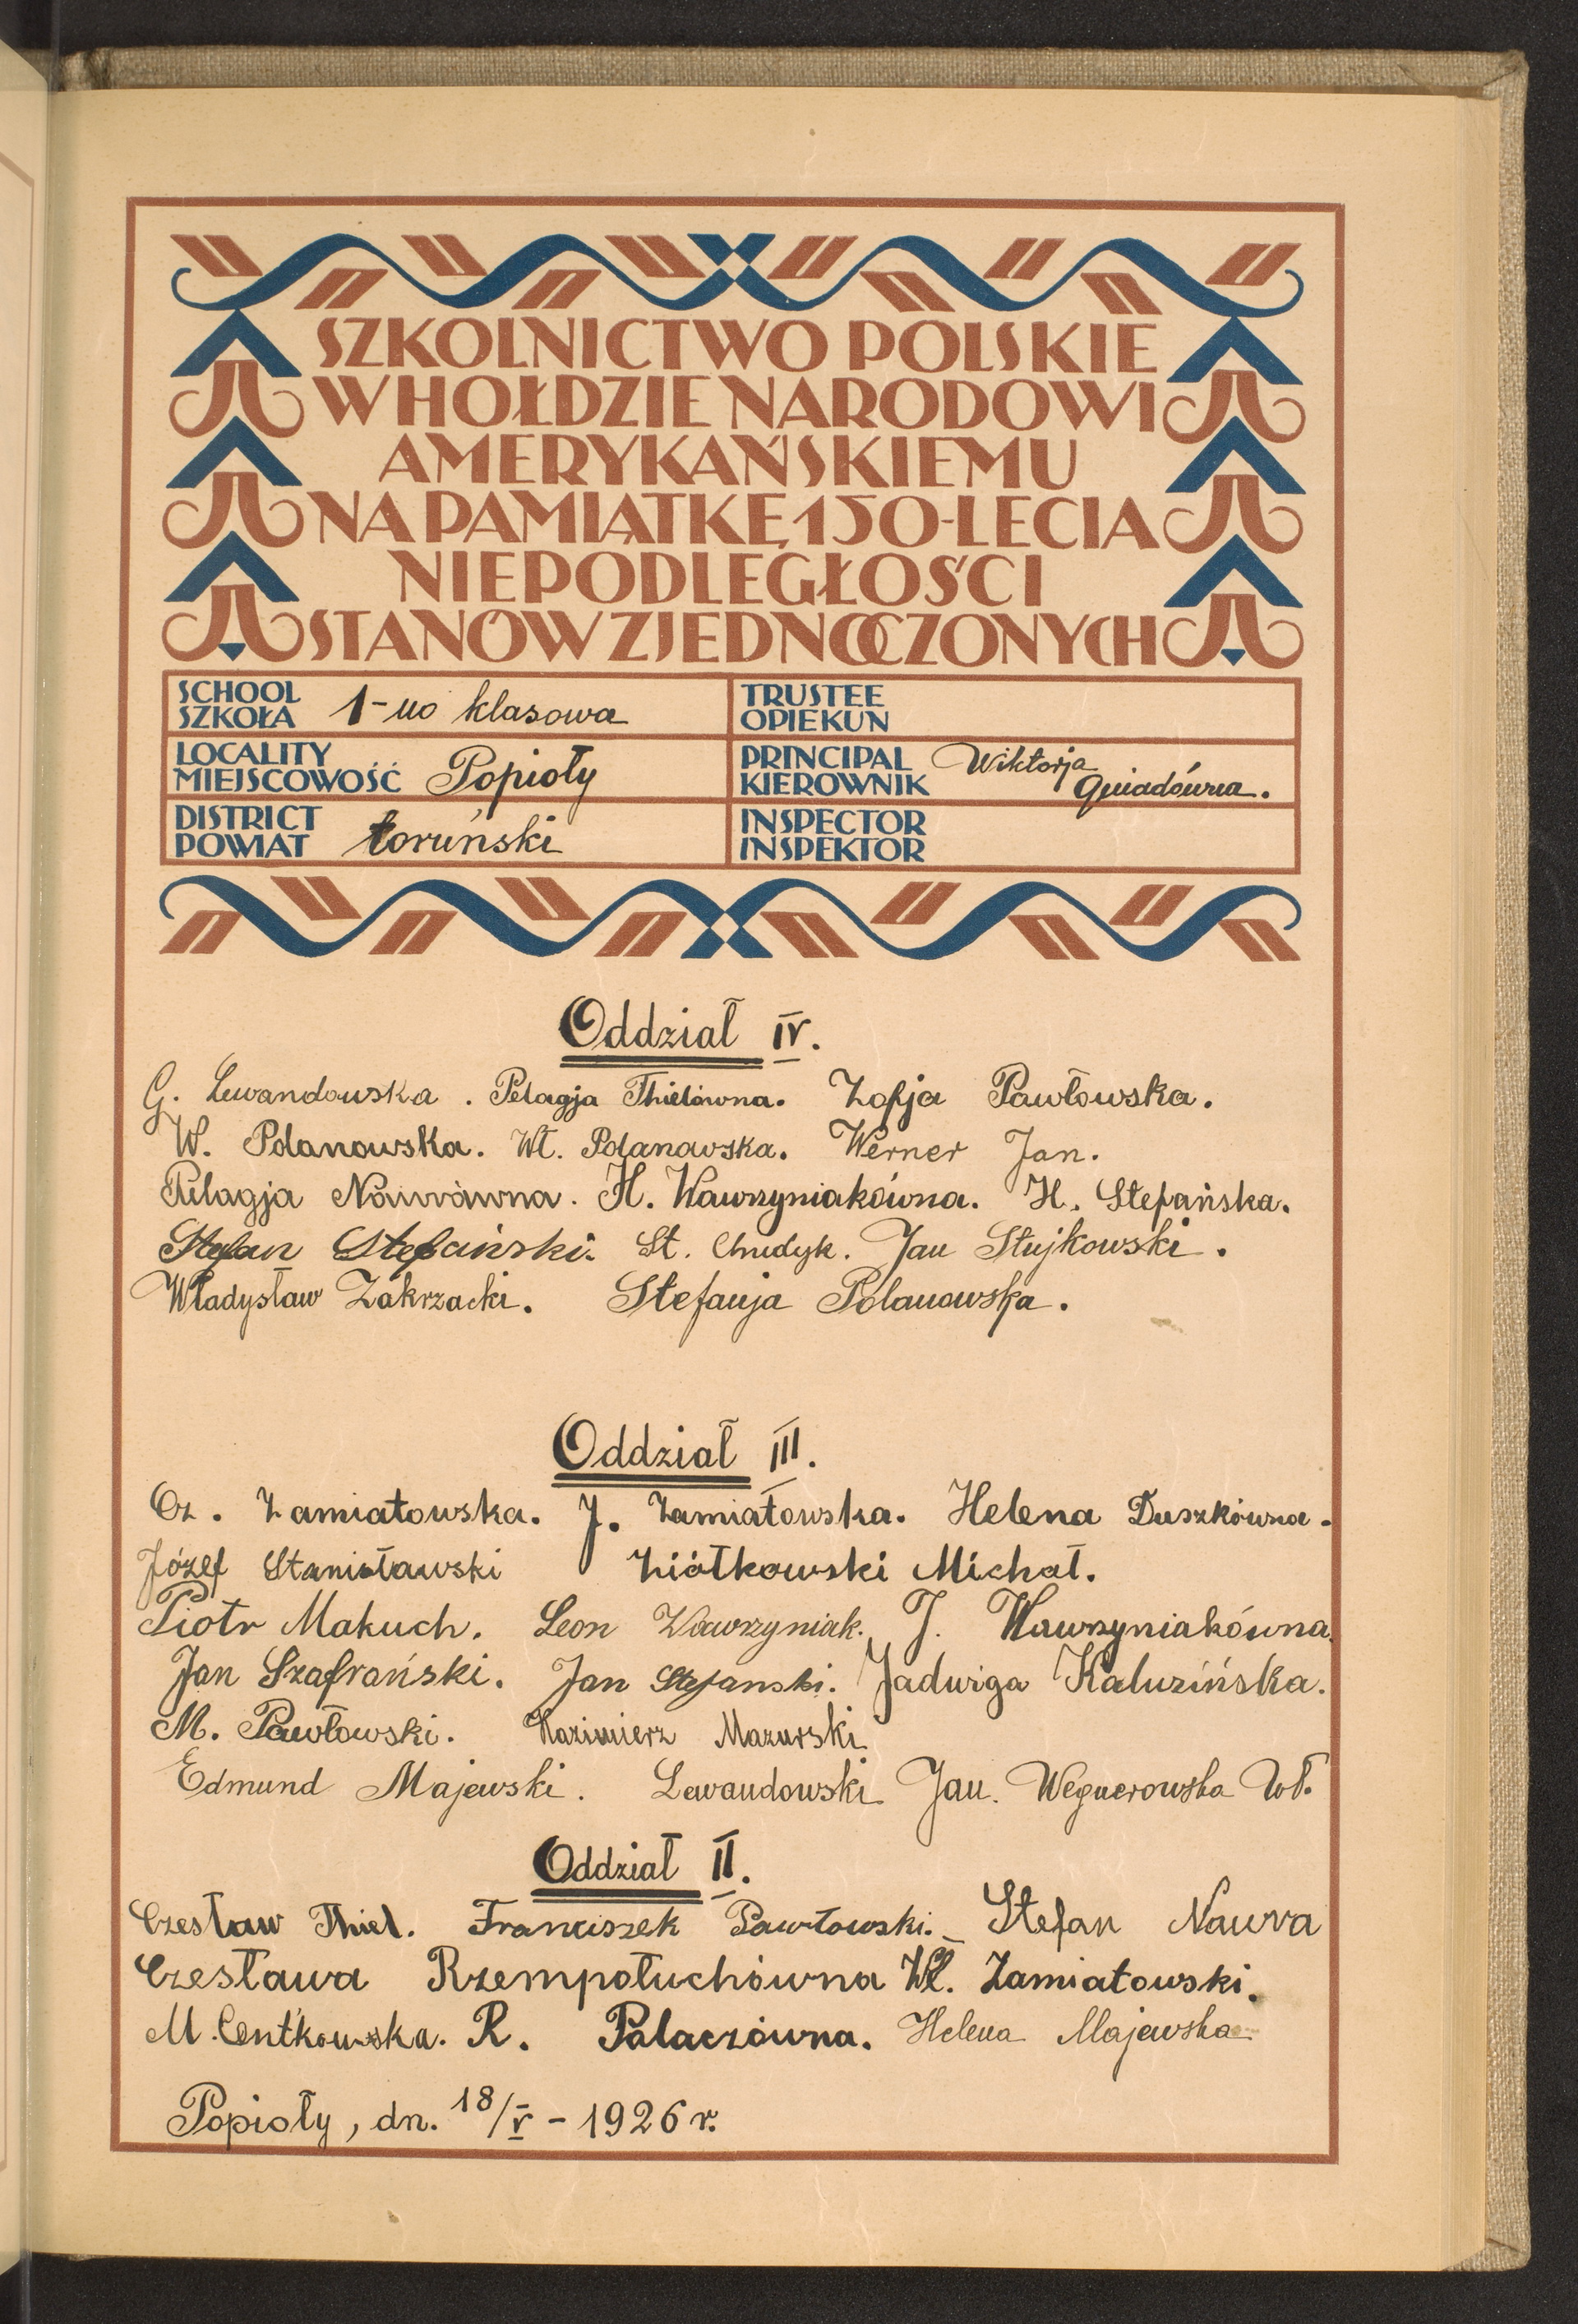 SZKOLNICTWO POLSKIE
W HOŁDZIE NARODOWI
AMERYKAŃSKIEMU
NA PAMIĄTKĘ 150-LECIA
NIEPODLEGŁOŚCI
STANÓW ZJEDNOCZONYCH
SCHOOL
SZKOŁA 1-no klasowa
TRUSTEE
OPIEKUN
LOCALITY
MIEJSCOWOŚĆ Popioły
PRINCIPAL Wiktorja
KIEROWNIK Gniadówna.
DISTRICT
POWIAT toruński
INSPECTOR
INSPEKTOR
Oddział IV.
G. Lewandowska. Pelagja Thielówna. Zofja Pawłowska.
W. Polanowska. Wł. Polanowska. Werner Jan.
Pelagja Nawrówna. H. Wawrzyniakówna. H. Stefańska.
Stefan Stefański. St. Chudyk. Jan Stujkowski.
Władysław Zakrzacki. Stefanja Polanowska.
Oddział III.
Cz. Zamiatowska. J. Zamiałowska. Helena Duszkówna.
Józef Stanisławski Ziółkowski Michał.
Piotr Makuch. Leon Wawrzyniak. J. Wawrzyniakówna.
Jan Szafrański. Jan Stefanski. Jadwiga Kaluzińska.
M. Pawłowski. Kazimierz Mazurski
Edmund Majewski. Lewandowski Jan. Wegnerowska Wł.
Oddział II.
Czesław Thiel. Franciszek Pawłowski. Stefan Nawra
Czesława Rzempołuchówna Wł. Zamiatowski.
M. Centkowska. R. Palaczówna. Helena Majewska
Popioły, dn. 18/V - 1926 r.